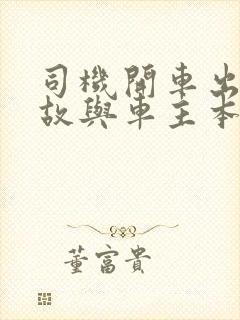 司機開車出
故與車主本
董富貴